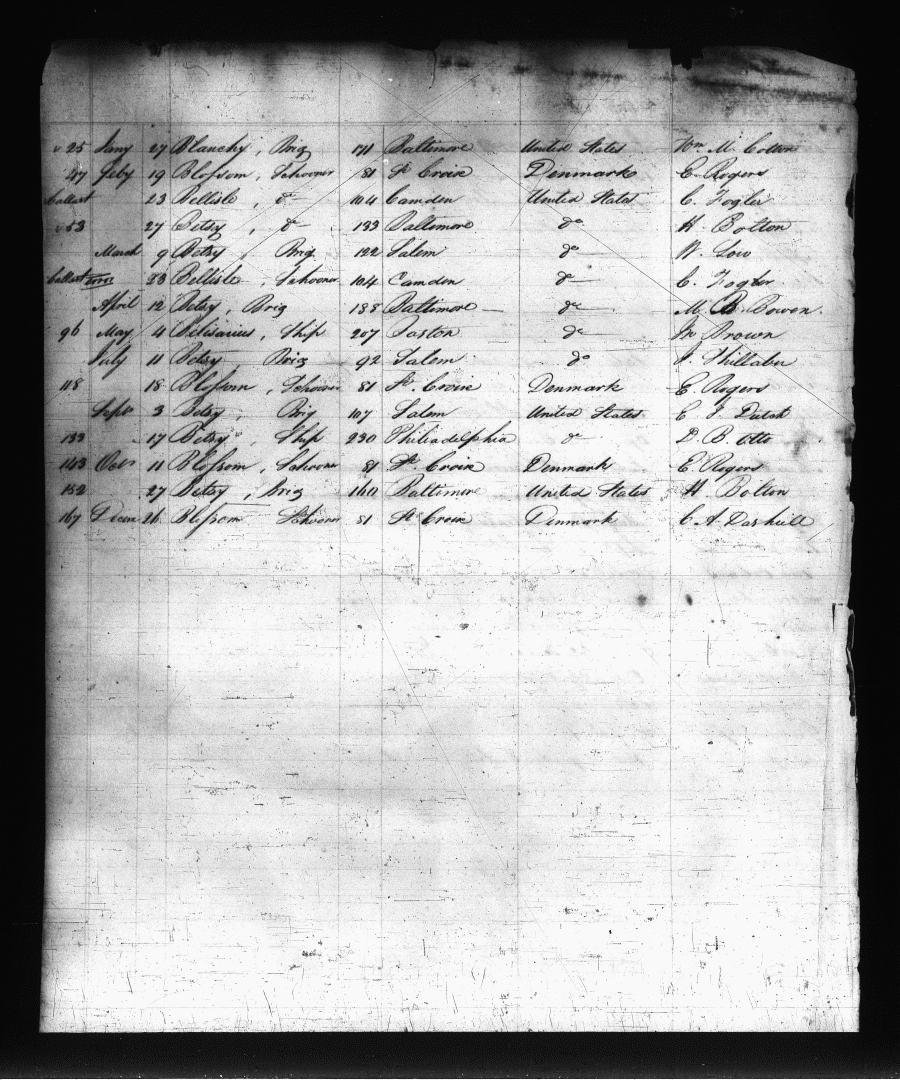 25 Jany 27 Blanchy, Brig 171 Baltimore United States Wm M. Cotton
47 Feby 19 Blossom, Schooner 81 St Croix Denmark E. Rogers
ballast 23 Bellisle, do 104 Camden United States C. Fogler
53 27 Betsy, do 133 Baltimore do H. Bolton
March 9 Betsy Brig 122 Salem do W. Low
ballast 23 Bellisle, Schooner 104 Camden do C. Fogler
April 12 Betsy, Brig 188 Baltimore do M. B. Bowen
96 May 4 Belisarius, Ship 207 Boston do Jn Brown
July 11 Betsy, Brig 92 Salem do J. Phillabu
118 18 Blossom, Schooner 81 St. Croix Denmark E. Rogers
Sept 3 Betsy, Brig 107 Salem United States E J. Dutch
133 17 Betsy, Ship 230 Philiadelphia do D. B. Otto
143 Octr 11 Blossom, Schooner 81 St. Croix Denmark E. Rogers
152 27 Betsy, Brig 160 Baltimore United States H. Bolton
167 Decem 26 Blossom Schooner 81 St Croix Denmark C. A. Dashiell